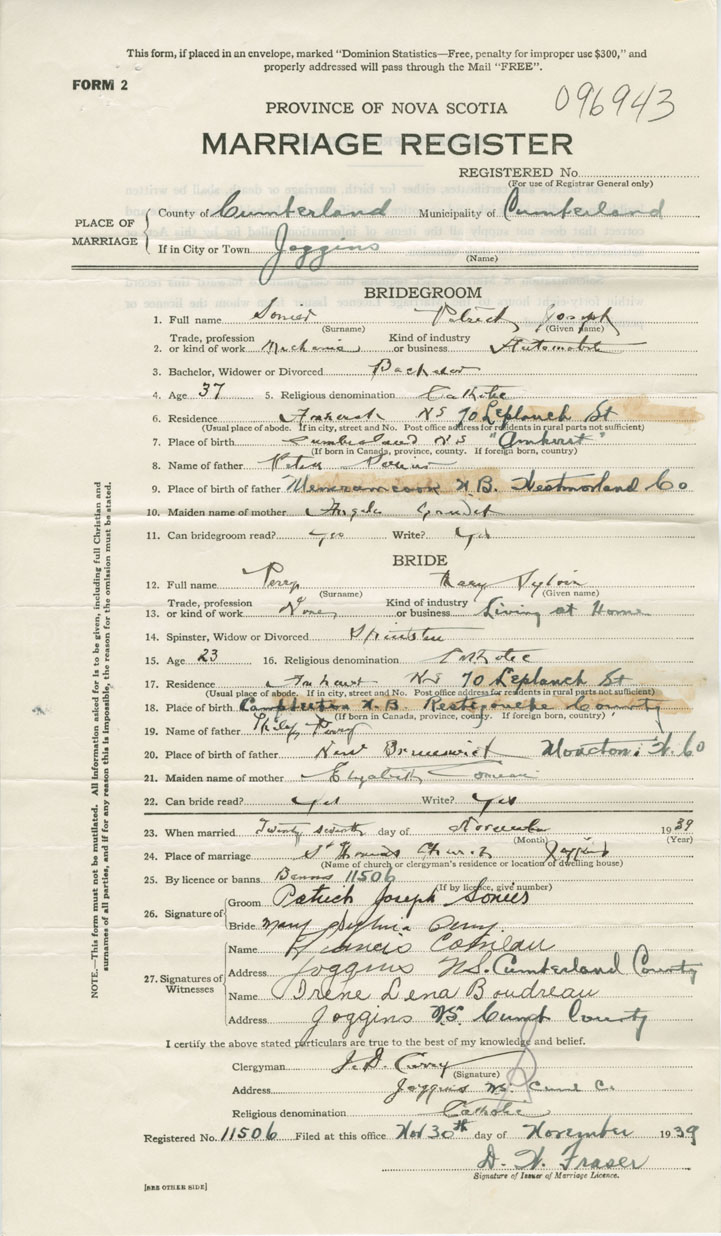 This form, if placed in an envelope, marked "Dominion Statistics—Free, penalty for improper use $300," and
properly addressed will pass through the Mail "FREE".
FORM 2
096943
PROVINCE OF NOVA SCOTIA
MARRIAGE REGISTER
REGISTERED No.
(For use of Registrar General only)
PLACE OF MARRIAGE
County of Cumberland Municipality of Cumberland
If in City or Town Joggins
(Name)
BRIDEGROOM
1. Full name Sonier Patrick Joseph
(Surname) (Given name)
2. Trade, profession or kind of work Mechanic Kind of industry or business Automobile
3. Bachelor, Widower or Divorced Bachelor
4. Age 37 5. Religious denomination Catholic
6. Residence Amherst NS 70 Leplanch St
(Usual place of abode. If in city, street and No. Post office address for residents in rural parts not sufficient)
7. Place of birth Cumberland NS "Amherst"
(If born in Canada, province, county. If foreign born, country)
8. Name of father Peter Sonier
9. Place of birth of father Memramcook N.B. Westmorland Co
10. Maiden name of mother Angele Gaudet
11. Can bridegroom read? Yes Write? Yes
BRIDE
12. Full name Perry Mary Sylvia
(Surname) (Given name)
13. Trade, profession or kind of work None Kind of industry or business Living at Home
14. Spinster, Widow or Divorced Spinster
15. Age 23 16. Religious denomination Catholic
17. Residence Amherst NS 70 Leplanch St
(Usual place of abode. If in city, street and No. Post office address for residents in rural parts not sufficient)
18. Place of birth Campbellton N.B. Restigouche County
(If born in Canada, province, county. If foreign born, country)
19. Name of father Perry
20. Place of birth of father New Brunswick Moncton W. Co
21. Maiden name of mother Elizabeth Comeau
22. Can bride read? Yes Write? Yes
23. When married Twenty seventh day of November 1939
(Month) (Year)
24. Place of marriage St Thomas Church Joggins
(Name of church or clergyman's residence or location of dwelling house)
25. By licence or banns Banns 11506
(If by licence, give number)
26. Signature of
Groom Patrick Joseph Sonier
Bride Mary Sylvia Perry
27. Signatures of Witnesses
Name Francis Comeau
Address Joggins N.S. Cumberland County
Name Irene Lena Boudreau
Address Joggins N.S. Cumb County
I certify the above stated particulars are true to the best of my knowledge and belief.
Clergyman J. D. Curry
(Signature)
Address Joggins NS Cumb Co.
Religious denomination Catholic
Registered No. 11506 Filed at this office Nov 30th day of November 1939
D. W. Fraser
Signature of Issuer of Marriage Licence.
[SEE OTHER SIDE]
NOTE.—This form must not be mutilated. All information asked for is to be given, including full Christian and
surnames of all parties, and if for any reason this is impossible, the reason for the omission must be stated.